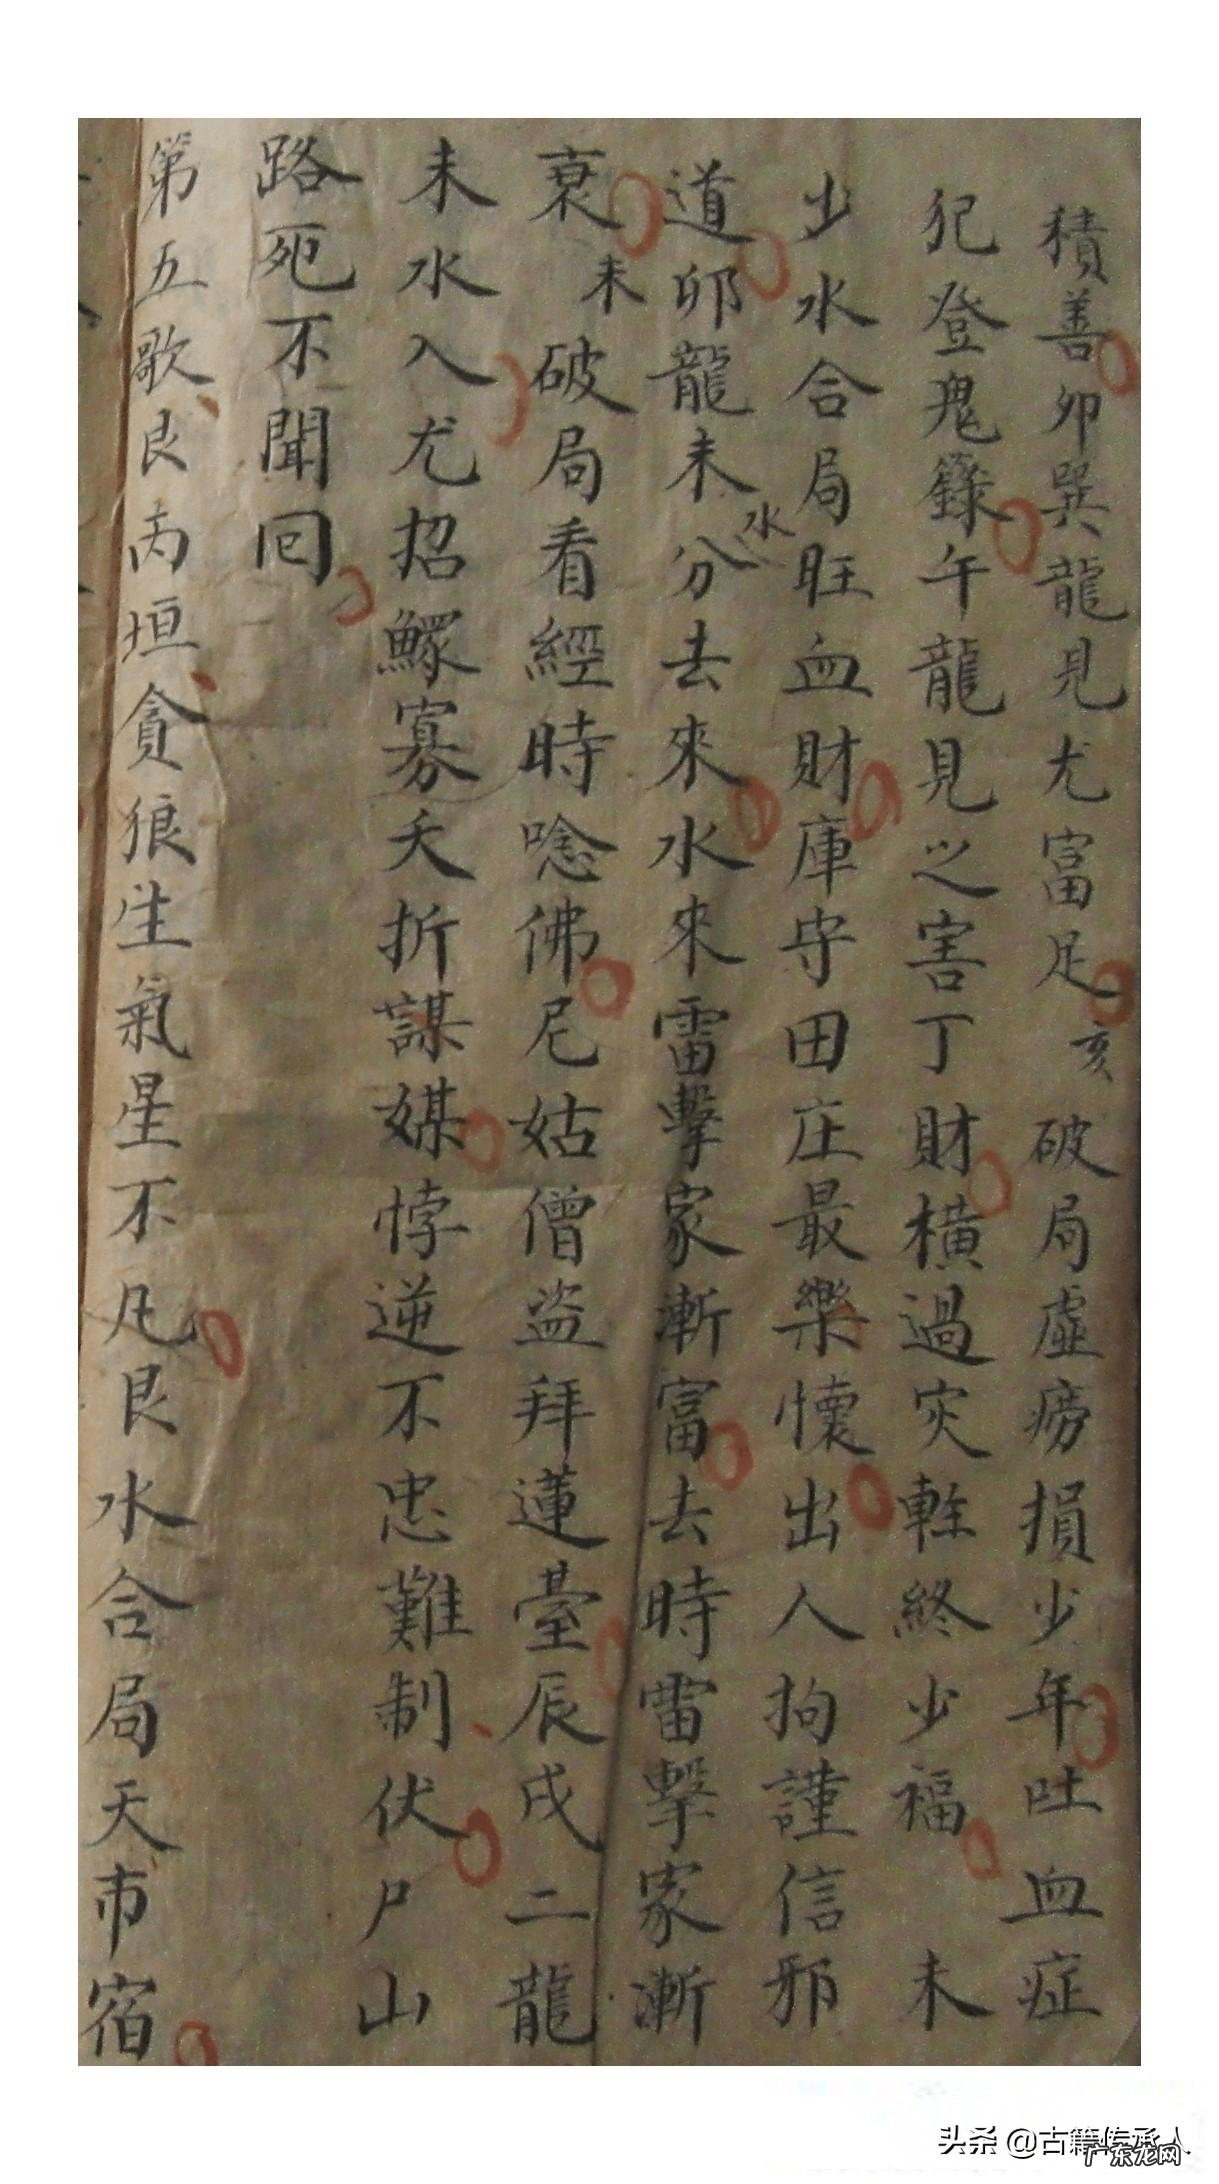 積善卯巽龍見尤富足亥破局虛癆損少年吐血症
犯登鬼籙午龍見之害丁財橫過灾輕終少福未
少水合局旺血財庫守田庄最樂懷出人拘謹信邪
道卯龍未分水去來水來雷擊家漸富去時雷擊家漸
衰未破局看經時唸佛尼姑僧盜拜蓮臺辰戌二龍
未水入尤招鰥寡夭折謀媒悖逆不忠難制伏尸山
路死不聞囘
第五歌艮丙垣貪狼生氣星不凡艮水合局天市宿
头条 @古籍传承人
广东龙网